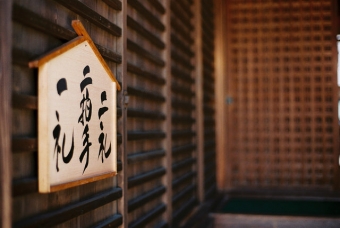 二礼
二拍手
一礼